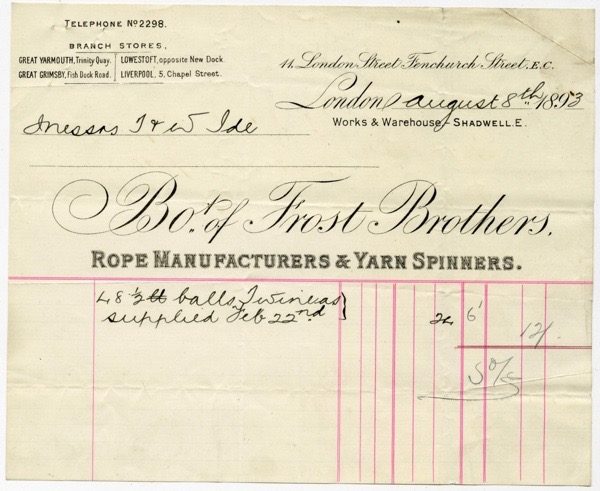 TELEPHONE No 2298.
BRANCH STORES,
GREAT YARMOUTH, Trinity Quay. LOWESTOFT, opposite New Dock.
GREAT GRIMSBY, Fish Dock Road. LIVERPOOL, 5, Chapel Street.
11, London Street Fenchurch Street, E.C.
London, august 8th 1893
Works & Warehouse - SHADWELL. E.
Messrs T & W Ide
Bot. of Frost Brothers,
ROPE MANUFACTURERS & YARN SPINNERS.
48 ½ lb balls Twine as
supplied Feb 22nd } 24 6
12/.